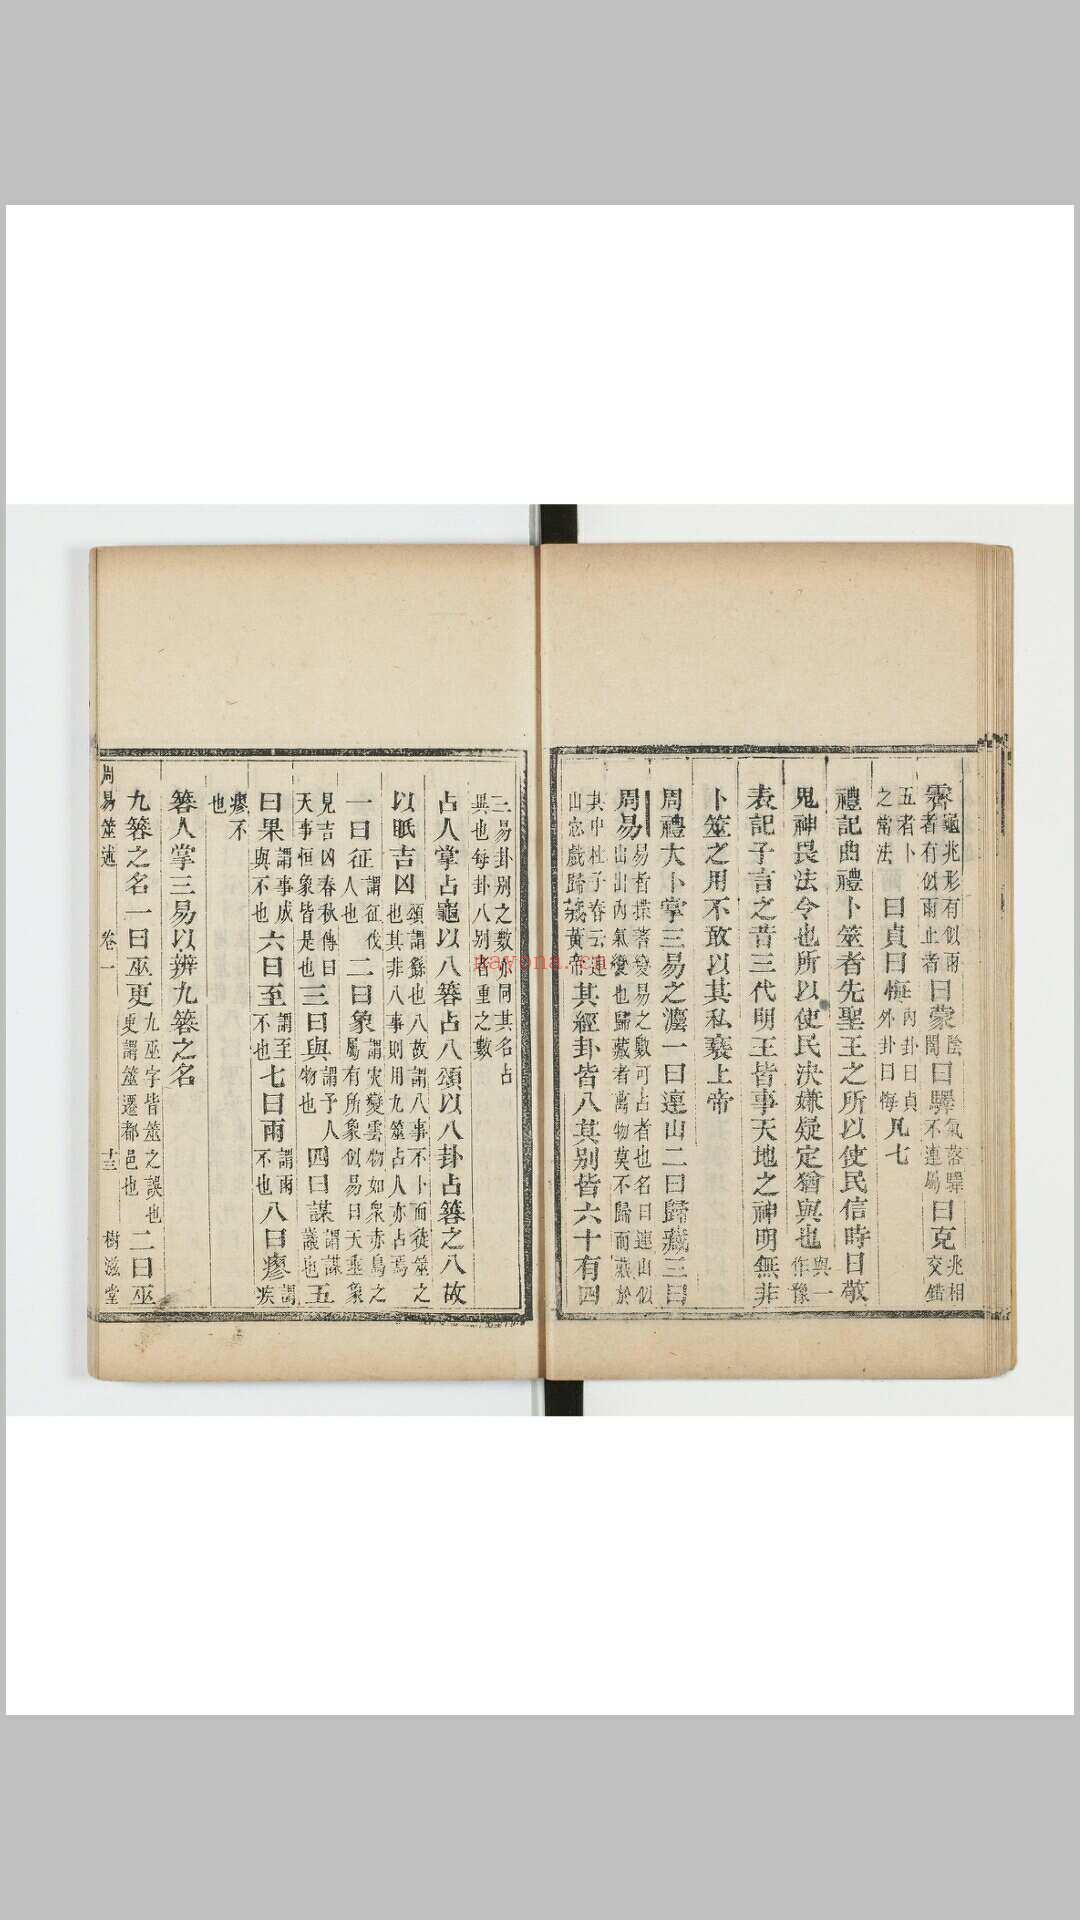 霽龜兆形有似雨
者有似雨止者曰蒙陰
闇曰驛氣落驛
不連屬曰克兆相
交錯
五者卜
之常法曰貞曰悔內卦曰貞
外卦曰悔凡七
禮記曲禮卜筮者先聖王之所以使民信時日敬
鬼神畏法令也所以使民決嫌疑定猶與也與一
作豫
表記子言之昔三代明王皆事天地之神明無非
卜筮之用不敢以其私褻上帝
周禮大卜掌三易之灋一曰連山二曰歸藏三曰
周易易者揲蓍變易之數可占者也名曰連山似
山出內氣變也歸藏者萬物莫不歸而藏於
其中杜子春云連
山宓戲歸藏黃帝其經卦皆八其別皆六十有四
三易卦別之數亦同其名占
異也每卦八別者重之數
占人掌占龜以八簭占八頌以八卦占簭之八故
以眂吉凶頌謂繇也八故謂八事不卜而徒筮之
也其非八事則用九筮占人亦占焉
一曰征謂征伐
人也二曰象謂災變雲物如衆赤鳥之
屬有所象似易曰天垂象
見吉凶春秋傳曰
天事恒象皆是也三曰與謂予人
物也四曰謀謂謀
議也五
曰果謂事成
與不也六曰至謂至
不也七曰雨謂雨
不也八曰瘳謂
疾
瘳不
也
簭人掌三易以辨九簭之名
九簭之名一曰巫更九巫字皆筮之誤也
更謂筮遷都邑也二曰巫
周易筮述 卷一 十三 樹滋堂
nayona.cn